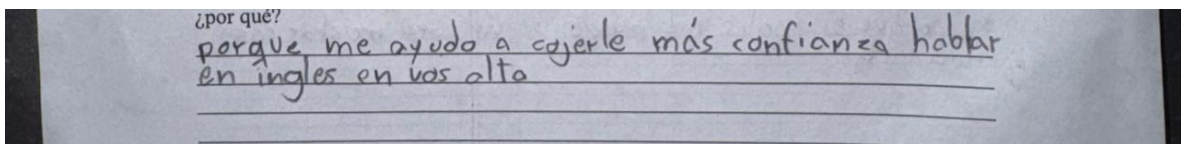 ¿por qué?
porque me ayudo a cojerle más confianza hablar
en ingles en vos alta